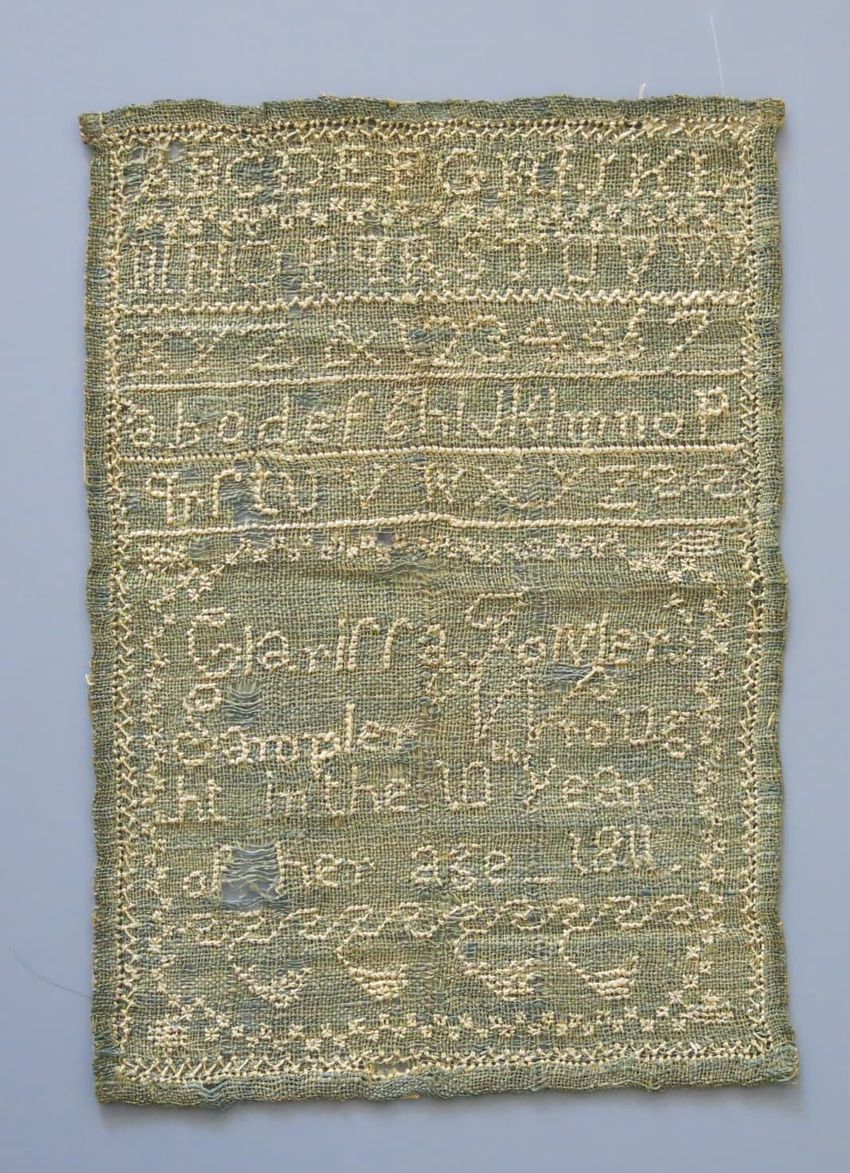 ABCDEFGHIJKL
MNOPQRSTUVW
XYZ & 1234567
abcdefghIJklmnop
qrſtu v wxyz&&
Clariſſa Fowlers
Sampler Wroug
ht in the 10th Year
of her age 1811